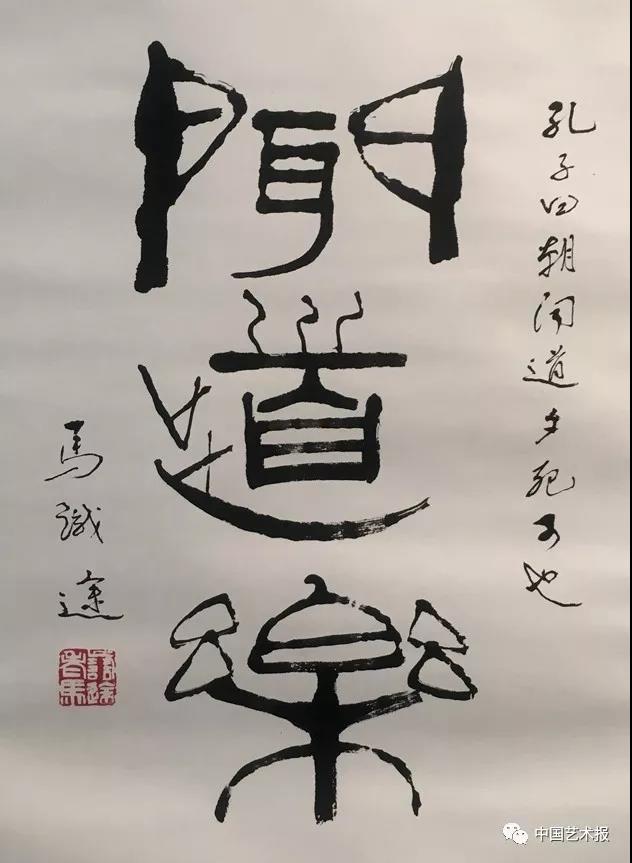 孔子曰朝闻道夕死可也
聞道樂
馬識途
識途老馬
中国艺术报